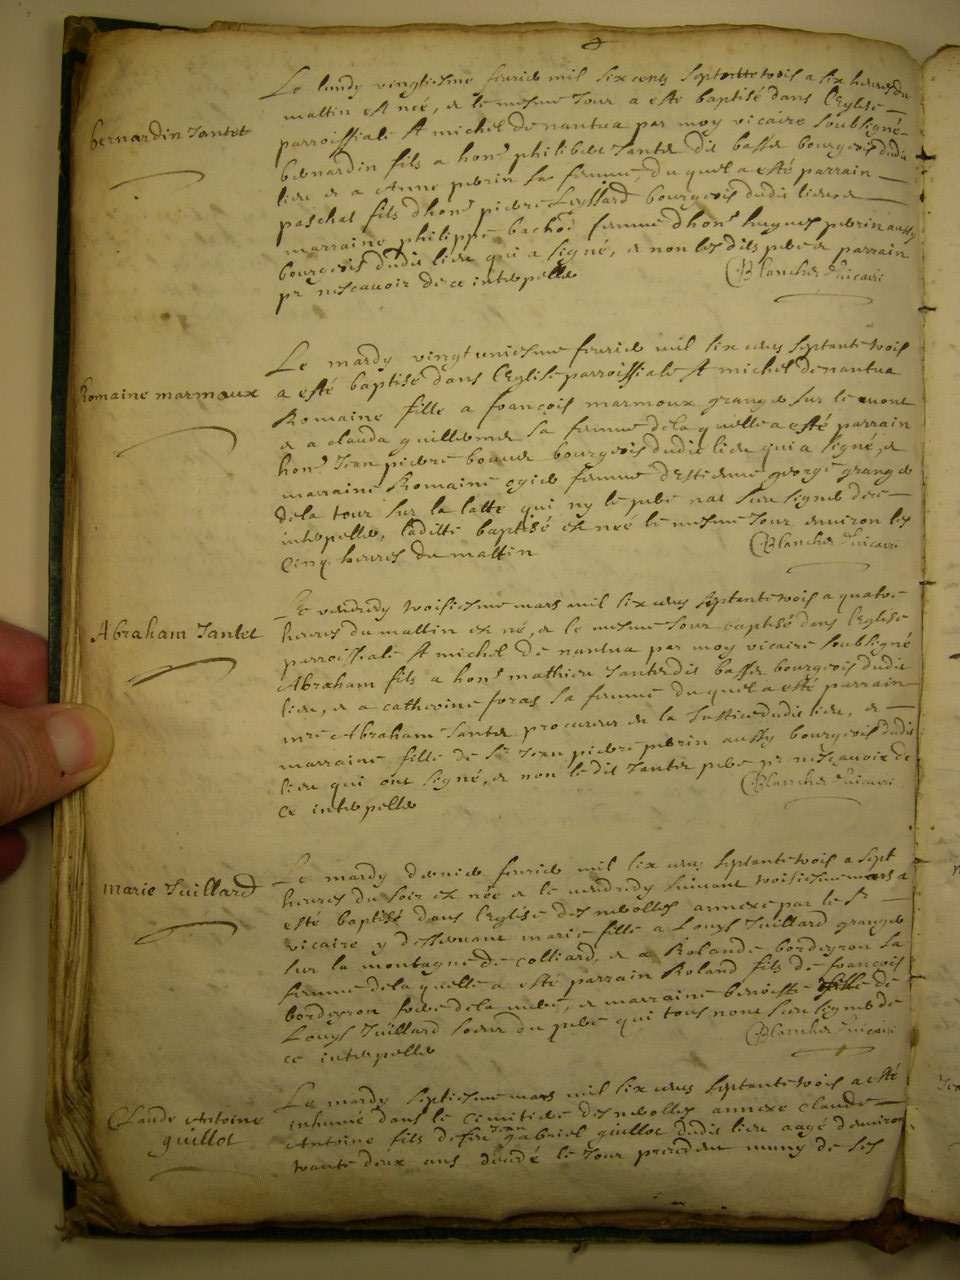 bernardin Jantet
Le lundy vingtiesme feurier mil six cens septante trois a six heures du
mattin est né, & le mesme Jour a esté baptisé dans l'Eglise
parroissiale St michel de nantua par moy vicaire soubsigné
bernardin fils a hon.e philibert Jantet dit basset bourgeois dudit
lieu & a Anne perrin sa femme, duquel a esté parrain
paschal fils d'hon.e pierre bourgeois dudit lieu &
marraine philippe bachod femme d'hon.e hugues perrin aussy
bourgeois dudit lieu qui a signé, & non lesdits pere & parrain
pr nescauoir de ce interpellés
Blanchet vicaire
Romaine marmoux
Le mardy vingt uniesme feurier mil six cens septante trois
a esté baptisé dans l'Eglise parroissiale St michel de nantua
Romaine fille a francois marmoux granger sur le mont
& a clauda guillermet sa femme de laquelle a esté parrain
hon.e Jean pierre bourgeois dudit lieu qui a signé, &
marraine Romaine femme d'Estienne george granger
de la tour sur la latte qui ny le pere nat sceu signer de ce
interpellés, laditte baptisé est née le mesme Jour enuiron les
Cinq heures du mattin
Blanchet vicaire
Abraham Jantet
Le vendredy troisiesme mars mil six cens septante trois a quatre
heures du mattin est né, & le mesme Jour baptisé dans l'Eglise
parroissiale St michel de nantua par moy vicaire soubsigné
Abraham fils a hon.e mathieu Jantet dit basset bourgeois dudit
lieu, & a catherine foras sa femme duquel a esté parrain
mre Abraham Jantet procureur en la Justice dudit lieu, &
marraine fille de Sr Jean pierre perrin aussy bourgeois dudit
lieu qui ont signé, & non ledit Jantet pere pr nescauoir de
ce interpellé
Blanchet vicaire
marie Juillard
Le mardy dernier feurier mil six cens septante trois a sept
heures du soir est née & le vendredy suiuant troisiesme mars a
esté baptisé dans l'Eglise des neyrolles annexe par le Sr
vicaire y desseruant marie fille a Louys Juillard granger
sur la montagne de colliard, & a Rolande borderon sa
femme de laquelle a esté parrain Roland fils de francois
borderon frere de la mere, & marraine benoiste fille de
Louys Juillard soeur du pere qui tous nont sceu signer de
ce interpellés
Blanchet vicaire
Claude Antoine
guillot
Le mardy septiesme mars mil six cens septante trois a esté
inhumé dans le cimitiere des neyrolles annexe claude
Antoine fils de feu Jean gabriel guillot dudit lieu aagé denuiron
trante deux ans decedé le Jour precedent muny de ses